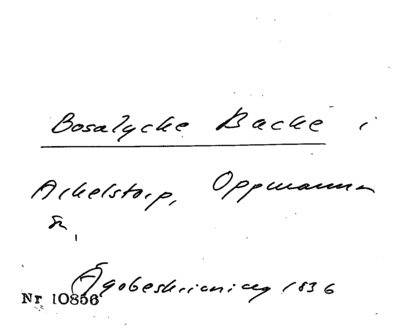 Bosalycke Backe i
Arkelstorp, Oppmanna
sn,
Ägobeskrivning 1836
Nr 10856